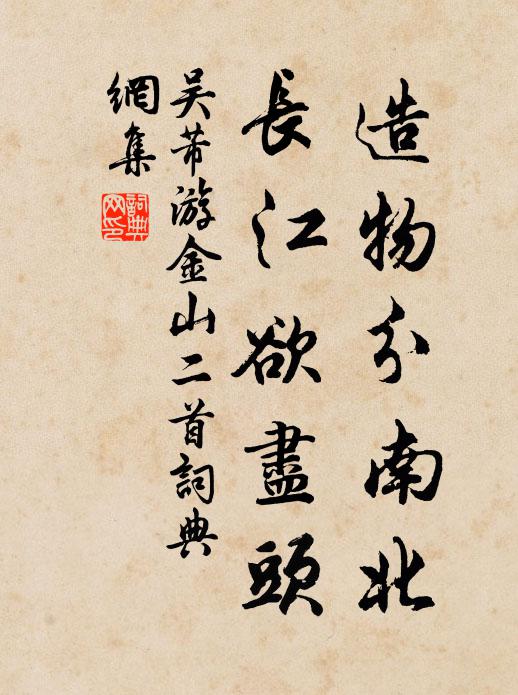 造物分南北
長江欲盡頭
吴芾游金山二首詞典
網集
詞典
网印